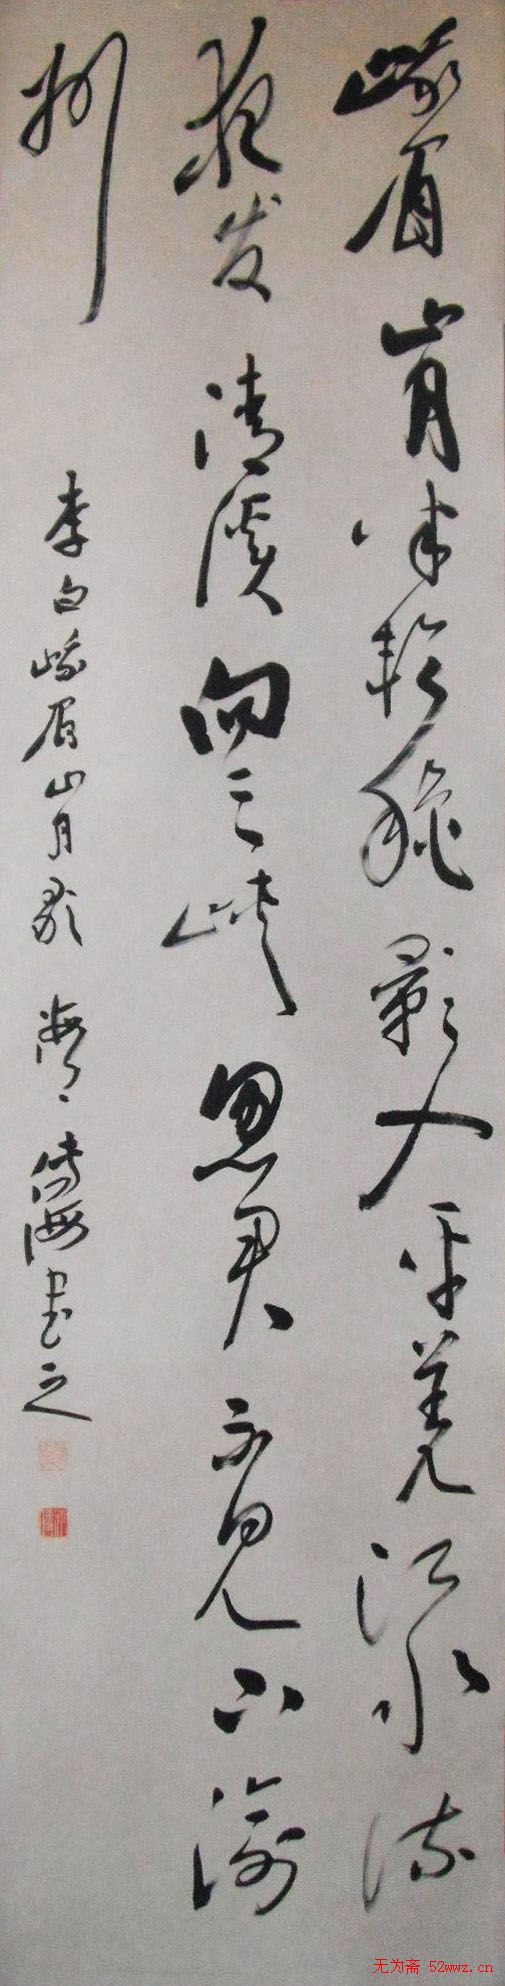 峨眉山月半轮秋影入平羌江水流
夜发清溪向三峡思君不见下渝
州
李白峨眉山月歌 海书之
无为斋 52wwz.cn